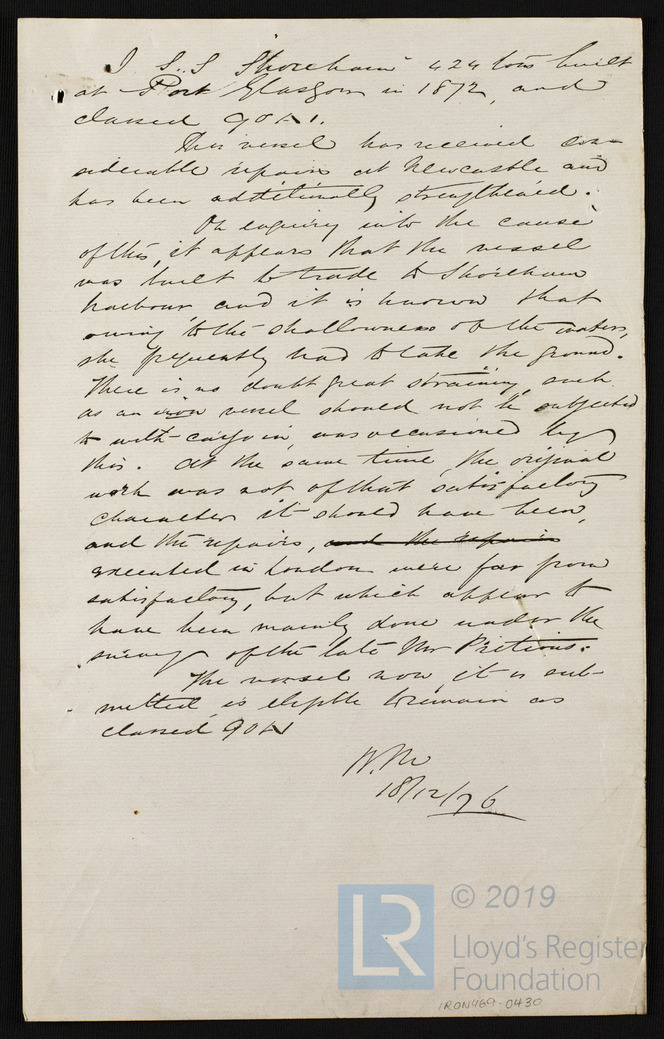 I S.S "Shoreham" 424 tons built
at Port Glasgow in 1872, and
classed 90A1.
This vessel has received con-
siderable repairs at Newcastle and
has been additionally strengthened.
On enquiry into the cause
of this, it appears that the vessel
was built to trade to Shoreham
harbour and it is known that
owing to the shallowness of the waters,
she frequently had to take the ground.
There is no doubt great straining, such
as an iron vessel should not be subjected
to with cargo in, was occasioned by
this. At the same time, the original
work was not of that satisfactory
character it should have been,
and the repairs, and the repairs
executed in London were far from
satisfactory, but which appear to
have been mainly done under the
survey of the late Mr
The vessel now, it is sub-
mitted, is eligible to remain as
classed 90A1
18/12/76
LR
© 2019
Lloyd's Register
Foundation
IRON469-0430